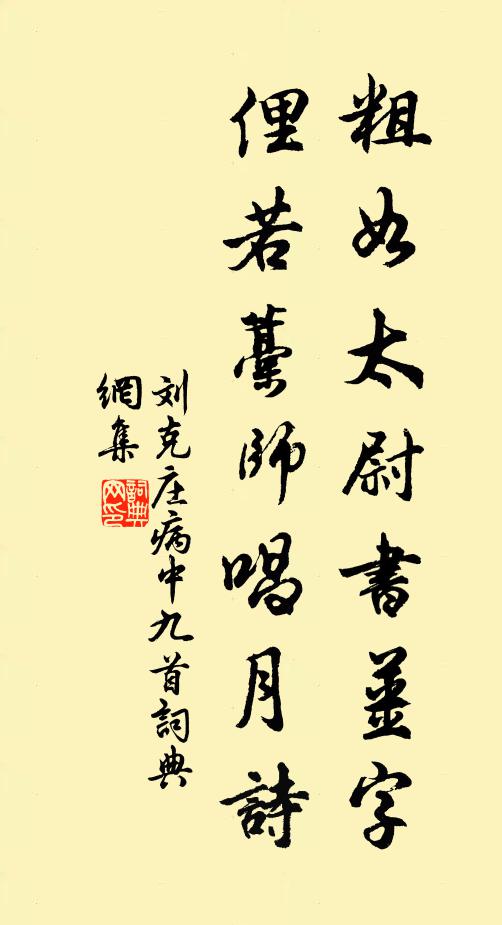 粗如太尉書薑字
俚若藁師唱月詩
刘克庄病中九首詞典
網集
詞典
网印